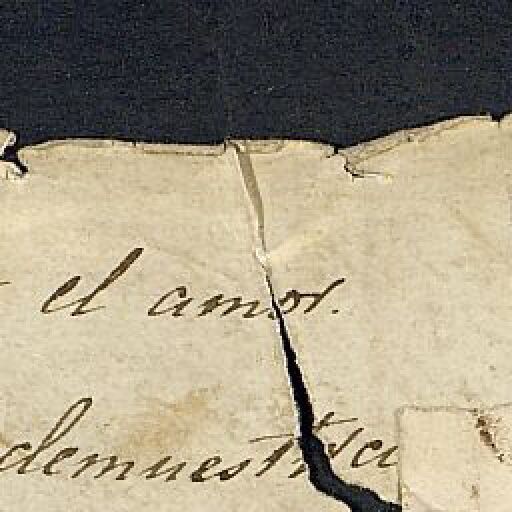 el amor.
demuestra